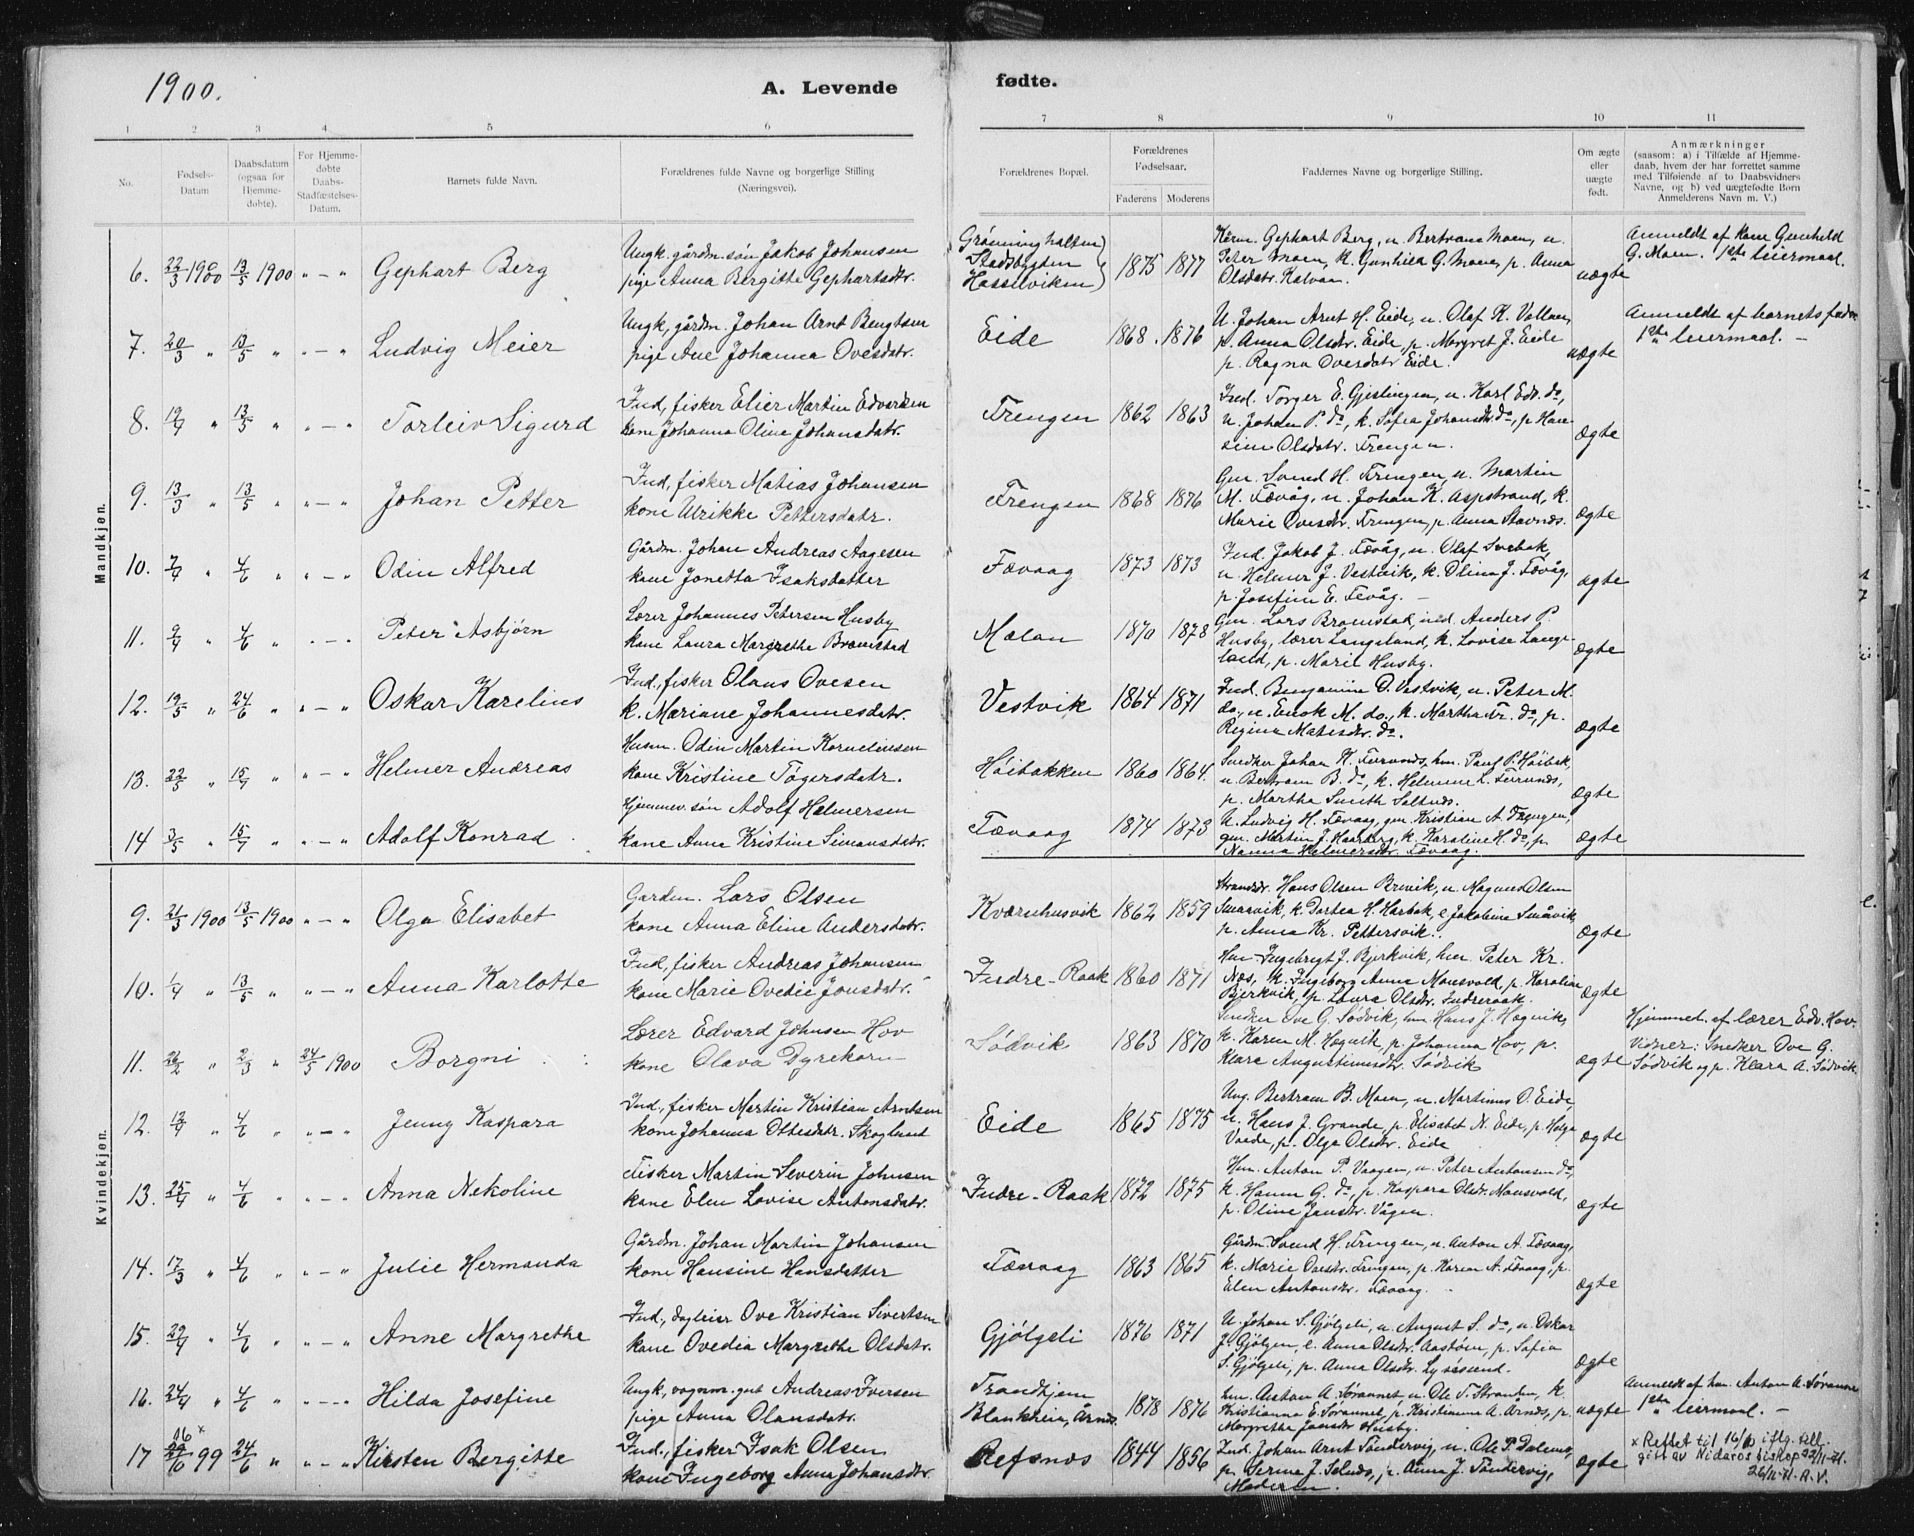 1900.
A. Levende fødte.
1 2 3 4 5 6 7 8 9 10 11
No.
Fødsels-
Datum
Daabsdatum
(ogsaa for
Hjemme-
døbte).
For Hjemme-
døbte
Daabs-
Stadfæstelses-
Datum.
Barnets fulde Navn.
Forældrenes fulde Navne og borgerlige Stilling
(Næringsvei).
Forældrenes Bopæl.
Forældrenes
Fødselsaar.
Faderens Moderens
Faddernes Navne og borgerlige Stilling.
Om ægte
eller
uægte
født.
Anmærkninger
(saasom: a) i Tilfælde af Hjemme-
daab, hvem der har forrettet samme
med Tilføiende af to Daabsvidners
Navne, og b) ved uægtefødte Børn
Anmelderens Navn m. V.)
Mandkjøn.
6. 22/3 1900 13/5 1900 " – " Gephart Berg
Ungk. gårdm. søn Jakob Johansen
pige Anna Bergitte Gephartsdtr.
Grønninghalten
Stadsbygden
Hasselviken
1875 1877
Gephart Berg, u. Bertrans Moen, u.
Peter Moen, k. Gunhild G. Moen, p. Anna
Olsdatr. Kalvaa.
uægte
Anmeldt af kone Gunhild
G. Moen. 1ste leiermaal.
7. 20/3 " 13/5 " " – " Ludvig Meier
Ungk, gårdm. Johan Arnt Bengtsen
pige Ane Johanna Ovesdatr.
Eide 1868. 1876
U. Johan Arnt H. Eide, u. Olaf K. Vollan,
p. Anna Olsdtr. Eide, p. Margret J. Eide
p. Ragna Ovesdatr Eide.
uægte
Anmeldt af barnets fader
1ste leiermaal. –
8. 19/4 " 13/5 " " – " Torleiv Sigurd
Ind, fisker Elier Martin Edvardsen
kone Johanna Oline Johansdatr.
Frengen 1862 1863
Ind. Torger E. Gjeslingen, u. Karl Edv. do,
u. Johan P. do, k. Sofia Johansdtr. do, p. Han-
sine Olsdatr. Frengen.
ægte
9. 13/3 " 13/5 " " – " Johan Petter
Ind, fisker Matias Johansen
kone Ulrikke Pettersdatr.
Frengen 1868 1876
Gm. Svend H. Frengen, u. Martin
M. Fævåg, u. Johan K. Aspstrand, k.
Marie Ovesdtr. Frengen, p. Anna Stavnæs.
ægte
10. 7/4 " 4/6 " " – " Odin Alfred
Gårdm. Johan Andreas Aagesen
kone Jonetta Isaksdatter
Fævaag 1873 1873
Ind. Jakob J. Fævåg, u. Olaf
u. Helmer J. Vestvik, k. Olina J. Fævåg,
p. Josefine E. Fævåg. –
ægte
11. 9/4 " 4/6 " " – " Peter Asbjørn
Lærer Johannes Petersen Husby
kone Laura Margrethe Bromstad
Mælan 1870 1878
Gm. Lars Bromstad, ind. Anders P.
Husby, lærer Langeland, k. Lovise Lange-
land, p. Marie Husby.
ægte
12. 19/5 " 24/6 " " – " Oskar Karelius
Ind., fisker Olaus Ovesen
k. Mariane Johannesdatr.
Vestvik 1864 1871
Ind. Benjamin O. Vestvik, u. Peter M.
do., u. Enok M. do., k. Martha Fr. do, p.
Regine Matisdtr. do.
ægte
13. 22/5 " 15/7 " " – " Helmer Andreas
Husm. Odin Martin Korneliusen
kone Kristine Tøgersdatr.
Høibakken 1860 1864.
Snedker Johan K. hm. Paul P. Høibak,
u. Bertram B. do, k. Helmine L.
p. Martha Smeth Saltnæs.
ægte
14 3/5 " 15/7 " " – " Adolf Konrad
Hjemmev. søn Adolf Helmersen
kone Anna Kristine Simonsdatr.
Fævaag 1874 1873
U. Ludvig H. Fævaag, gm. Kristian A. Frengen,
gm. Martin J. Haarberg, k. Karoline H. do, p.
Nanna Helmersdtr. Fævaag.
ægte
Kvindekjøn.
9. 21/3 1900 13/5 1900 " – " Olga Elisabet
Gardm. Lars Olsen
kone Anna Eline Andersdatr.
Kværnhusvik 1862 1859
Strandsr. Hans Olsen Brevik, u. Magnus Olsen
Småvik, k. Dortea H. Harbak, e Jakobine Småvik,
p. Anna Kr. Pettersvik.
ægte
10. 1/4 " 13/5 " " – " Anna Karlotte
Ind, fisker Andreas Johansen
kone Marie Ovedie Jonsdatr.
Indre-Raak 1860 1871
Hm Ingebrigt J. Bjerkvik, hm. Peter Kr.
Næs, k. Ingeborg Anna Monsvold, p. Karoline
Bjerkvik, p. Laura Olsdtr. Indreraak.
ægte
11. 26/2 " 2/3 " 24/5 1900 Borgni
Lærer Edvard Johnsen Hov
kone Olava Dyrekorn
Sødvik 1863 1870
Snedker Ove G. Sødvik, hm. Hans J. Hegvik,
k. Karen M. Hegvik, p. Johanna Hov, p.
Klara Augustinusdtr. Sødvik
ægte
Hjemmet. af lærer Edv. Hov.
Vidner: Snedker Ove G.
Sødvik og p. Klara A. Sødvik.
12. 13/4 " 4/6 " " – " Jenny Kaspara
Ind, fisker Martin Kristian Arntsen
kone Johanna Ottesdatr. Skoglund
Eide 1865 1875
Ung. Bertram B. Moen, u. Martinus O. Eide,
u. Hans J. Grande, p. Elisabet N. Eide, p. Helga
p. Olga Olsdtr. Eide
ægte
13. 25/4 " 4/6 " " – " Anna Nekoline
Fisker Martin Severin Johnsen
kone Elen Lovise Antonsdatr.
Indre-Raak 1872 1875
Hm. Anton P. Vaagen, u. Peter Antonsen do,
k. Hanna G. do, p. Kaspara Olsdtr. Monsvold,
p. Oline Jansdtr. Vågen.
ægte
14. 17/3 " 4/6 " " – " Julie Hermanda
Gårdm. Johan Martin Johansen
kone Hansine Hansdatter
Fævaag 1863 1865
Gårdm. Svend H. Frengen, u. Anton A. Fævaag,
k. Marie Ovesdtr. Frengen, p. Karen A. Fævaag, p.
Elen Antonsdtr. Fævaag.
ægte
15. 29/4 " 4/6 " " – " Anne Margrethe
Ind., dagleier Ove Kristian Sivertsen
kone Ovedia Margrethe Olsdatr.
Gjølgeli 1876 1871
U. Johan S. Gjølgeli, u. August S. do, u. Oskar
J. Gjølgen, e. Anna Olsdtr. Aastøen, p. Sofia
S. Gjølgeli, p. Anna Olsdtr. Lysøsund.
ægte
16. 24/4 " 4/6 " " – " Hilda Josefine
Ungk, vognm. gut Andreas Iversen
pige Anna Olausdatr.
Trondhjem
Årnæs. 1878 1876
hm. Anton A. Sørannet u. Ole T. Stranden, k.
Kristianna E. Sørannet, p. Kristianna A. Årnæs, p.
Margrethe Jansdtr Husby.
uægte
Anmeldt af hm. Anton A. Sørannet
1ste leiermaal. –
16 x
17 99 24/6 " " – " Kirsten Bergitte
Ind., fisker Isak Olsen
kone Ingeborg Anna Johansdtr.
Refsnæs 1844 1856
Ind. Johan Arnt Tøndervig, u. Ole P. Dalems,
p. Serine J. Selnæs, p. Anna J. Tøndervig,
Moderen.
ægte
x Rettet til 16/10 iflg. till.
gitt av Nidaros biskop 22/11-41.
26/11-41. A.V.